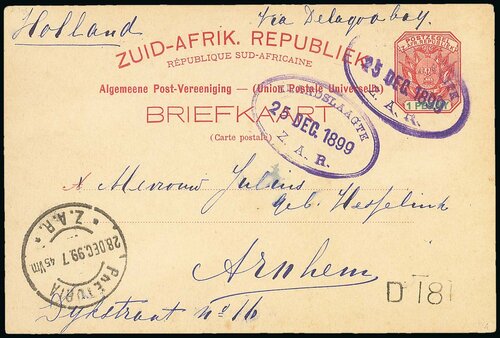 Holland Via Delagoabay.
ZUID-AFRIK. REPUBLIEK.
RÉPUBLIQUE SUD-AFRICAINE
Algemeene Post-Vereeniging — (Union Postale Universelle)
BRIEFKAART
(Carte postale)
25 DEC. 1899
Z. A. R.
ELANDSLAAGTE
25 DEC. 1899
Z. A. R.
Mevrouw Julius
geb. Hesselink
Arnhem
Dykstraat no 16
PRETORIA
28.DEC.99.7 45Vm
Z.A.R.
D T8